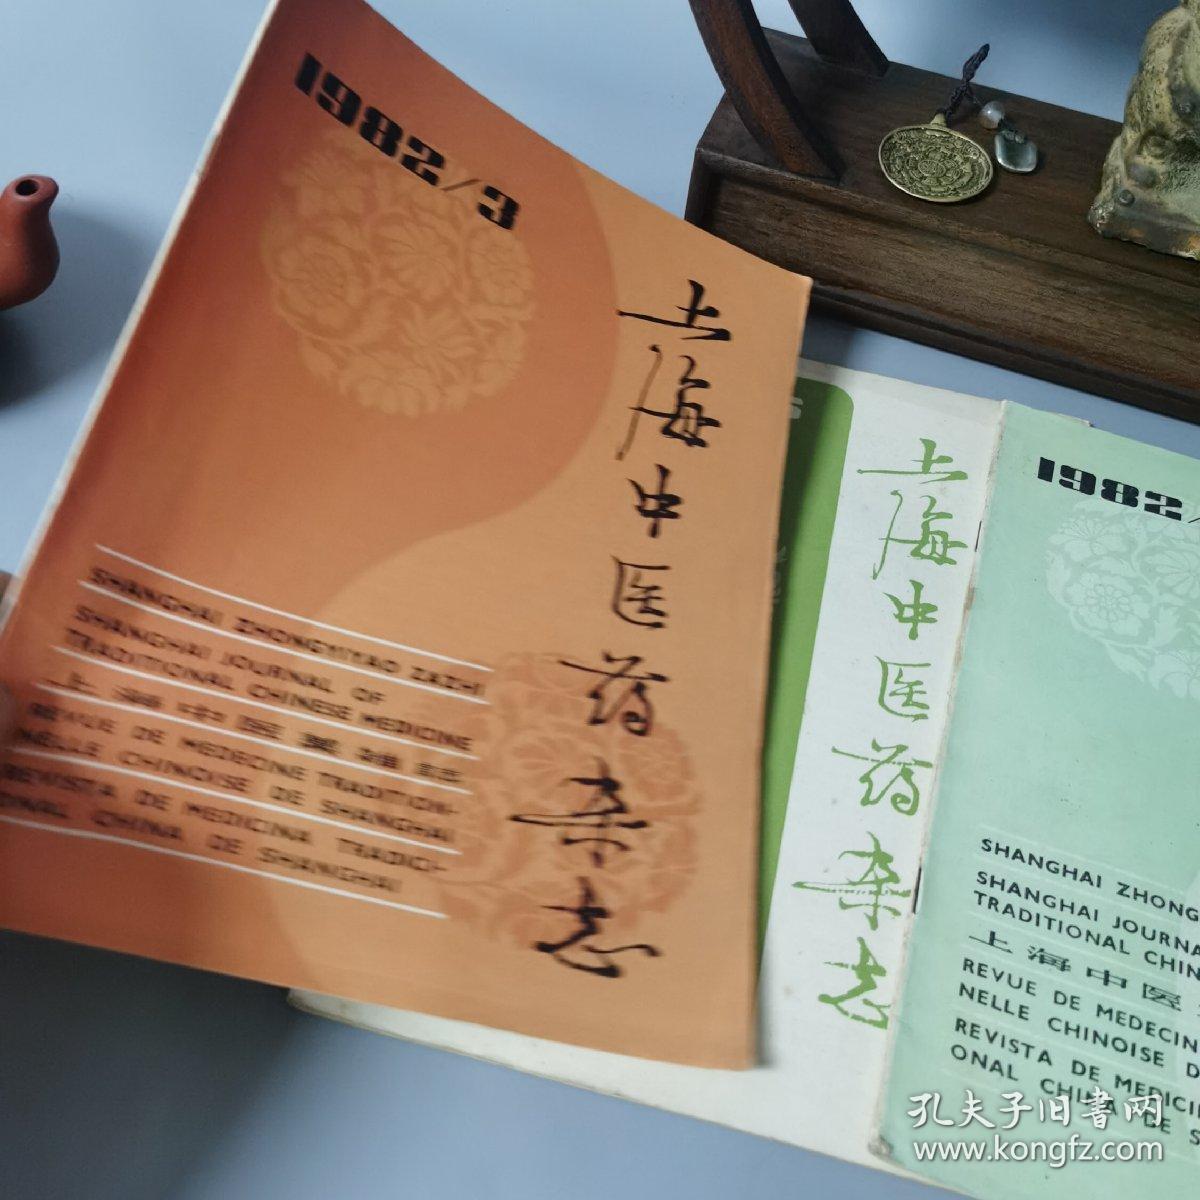 1982/3
上海中医药杂志
SHANGHAI ZHONGYIYAO ZAZHI
SHANGHAI JOURNAL OF
TRADITIONAL CHINESE MEDICINE
上海中医药杂志
REVUE DE MEDECINE TRADITION-
NELLE CHINOISE DE SHANGHAI
REVISTA DE MEDICINA TRADICI-
ONAL CHINA DE SHANGHAI
上海中医药杂志
1982/
SHANGHAI ZHONG
SHANGHAI JOURNA
TRADITIONAL CHIN
上海中医
REVUE DE MEDECIN
NELLE CHINOISE D
REVISTA DE MEDICI
ONAL CHINA DE S
孔夫子旧书网
www.kongfz.com